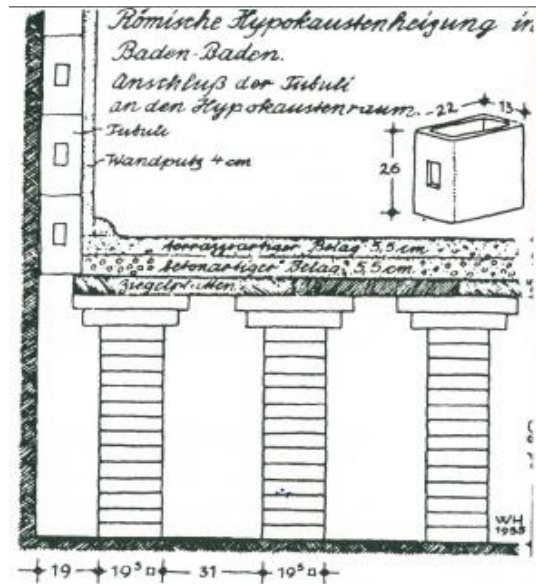 Römische Hypokaustenheizung in
Baden-Baden.
Anschluß der Tubuli
an den Hypokaustenraum.
22
13
26
Tubuli
Wandputz 4 cm
terrazzoartiger Belag 5,5 cm
betonartiger Belag 5,5 cm
Ziegelplatten
WH
1955
19
19⁵
31
19⁵